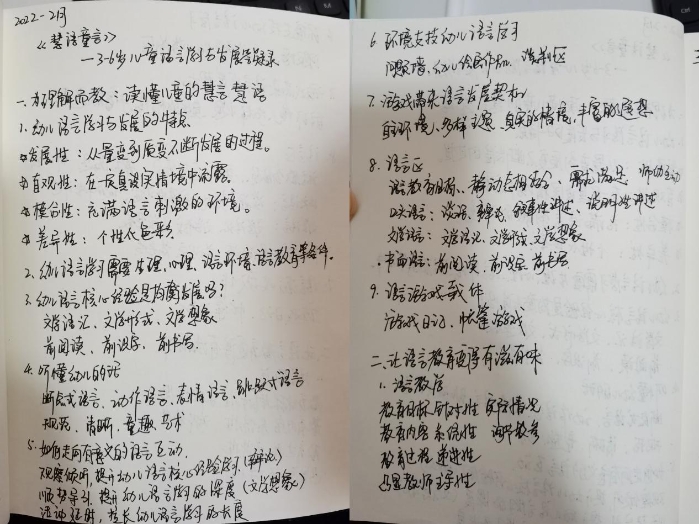 2022-2月
《慧语童言》
——3-6岁儿童语言学习与发展实录
一、为理解而教：读懂儿童的慧言慧语
1. 幼儿语言学习与发展的特点
发展性：从量变到质变不断发展的过程。
直观性：在一定真实情境中
整合性：充满语言刺激的环境。
差异性：个性化色彩
2. 幼儿语言学习需要生理、心理、语言环境、语言教育等条件。
3. 幼儿语言核心经验是均衡发展吗？
文学语汇、文学形式、文学想象
前阅读、前识字、前书写。
4. 听懂幼儿的话
断点式语言、动作语言、表情语言、跳跃式语言
规范、清晰、童趣、艺术
5. 如何走向有意义的语言互动
观察倾听，提升幼儿语言核心经验学习（辩论）
顺势导引，提升幼儿语言学习的深度（文学想象）
活动延时，拉长幼儿语言学习的长度
6. 环境支持幼儿语言学习
问题墙、幼儿绘本作品、
7. 游戏带来语言发展契机
自主环境、多样主题、真实的情境、丰富的
8. 语言区
语言教育目标、静动态相结合、需求满足、师幼互动
口头语言：谈话、辩论、叙事性讲述、说明性讲述
文学语言：文学语汇、文学形式、文学想象
书面语言：前阅读、前识字、前书写
9. 语言游戏载体
游戏日记、帐篷游戏
二、让语言教育变得有滋有味
1. 语言教学
教育目标 针对性 实际情况
教育内容 系统性 调整教参
教育过程 递进性
凸显教师主导性